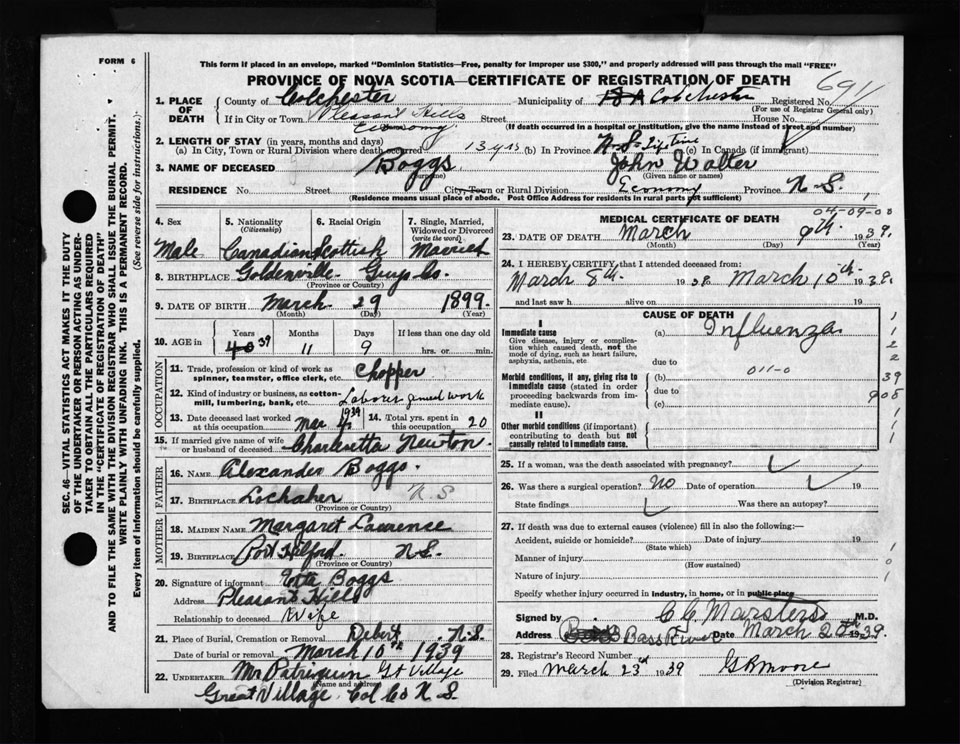 FORM 6
This form if placed in an envelope, marked "Dominion Statistics—Free, penalty for improper use $300," and properly addressed will pass through the mail "FREE"
PROVINCE OF NOVA SCOTIA—CERTIFICATE OF REGISTRATION OF DEATH
691
1. PLACE OF DEATH
County of Colchester Municipality of Colchester Registered No.
(For use of Registrar General only)
If in City or Town Pleasant Hills Street House No.
Economy
(If death occurred in a hospital or institution, give the name instead of street and number)
2. LENGTH OF STAY (in years, months and days)
(a) In City, Town or Rural Division where death occurred 13 yrs (b) In Province N.S. Lifetime (c) In Canada (if immigrant)
3. NAME OF DECEASED Boggs John Walter
(Surname) (Given name or names)
RESIDENCE No. Street City, Town or Rural Division Economy Province N.S.
(Residence means usual place of abode. Post Office Address for residents in rural parts not sufficient)
4. Sex
Male
5. Nationality
(Citizenship)
Canadian
6. Racial Origin
Scottish
7. Single, Married, Widowed or Divorced
(write the word)
Married
8. BIRTHPLACE Goldenville Guys Co.
(Province or Country)
9. DATE OF BIRTH March 29 1899
(Month) (Day) (Year)
10. AGE in
Years Months Days If less than one day old
40 39 11 9 hrs. or min.
OCCUPATION
11. Trade, profession or kind of work as spinner, teamster, office clerk, etc. Chopper
12. Kind of industry or business, as cotton-mill, lumbering, bank, etc. Laborer
13. Date deceased last worked at this occupation Mar 4 1939
14. Total yrs. spent in this occupation 20
15. If married give name of wife or husband of deceased Newton
FATHER
16. NAME Alexander Boggs
17. BIRTHPLACE Lochaber N.S
(Province or Country)
MOTHER
18. MAIDEN NAME Margaret Lawrence
19. BIRTHPLACE Port Hilford. N.S.
(Province or Country)
20. Signature of informant Etta Boggs
Address Pleasant Hills
Relationship to deceased Wife
21. Place of Burial, Cremation or Removal Debert N.S.
Date of burial or removal March 10th 1939
22. UNDERTAKER Mr Patriquin Gt Village
(Name and address)
Great Village, Col Co N.S.
MEDICAL CERTIFICATE OF DEATH
04-09-00
23. DATE OF DEATH March 9th 1939.
(Month) (Day) (Year)
24. I HEREBY CERTIFY, that I attended deceased from:
March 8th 1939 March 10th 1939.
and last saw h alive on 19
CAUSE OF DEATH
I
Immediate cause
Give disease, injury or complication which caused death, not the mode of dying, such as heart failure, asphyxia, asthenia, etc
(a) Influenza
due to
Morbid conditions, if any, giving rise to immediate cause (stated in order proceeding backwards from immediate cause).
011-0
(b)
due to
(c)
II
Other morbid conditions (if important) contributing to death but not causally related to immediate cause.
1
1
2
2
39
908
1
1
1
25. If a woman, was the death associated with pregnancy?
26. Was there a surgical operation? No Date of operation 19
State findings Was there an autopsy?
27. If death was due to external causes (violence) fill in also the following:—
Accident, suicide or homicide? Date of injury 19
(State which)
Manner of injury
(How sustained)
Nature of injury
Specify whether injury occurred in industry, in home, or in public place
Signed by C. C. Marsters M.D.
Address Bass River Date March 20th 1939.
28. Registrar's Record Number
29. Filed March 23rd 1939 G R Moore
(Division Registrar)
SEC. 46—VITAL STATISTICS ACT MAKES IT THE DUTY OF THE UNDERTAKER OR PERSON ACTING AS UNDERTAKER TO OBTAIN ALL THE PARTICULARS REQUIRED IN THE "CERTIFICATE OF REGISTRATION OF DEATH" AND TO FILE THE SAME WITH THE DIVISION REGISTRAR WHO SHALL ISSUE THE BURIAL PERMIT.
WRITE PLAINLY WITH UNFADING INK. THIS IS A PERMANENT RECORD.
Every item of information should be carefully supplied. (See reverse side for instructions.)